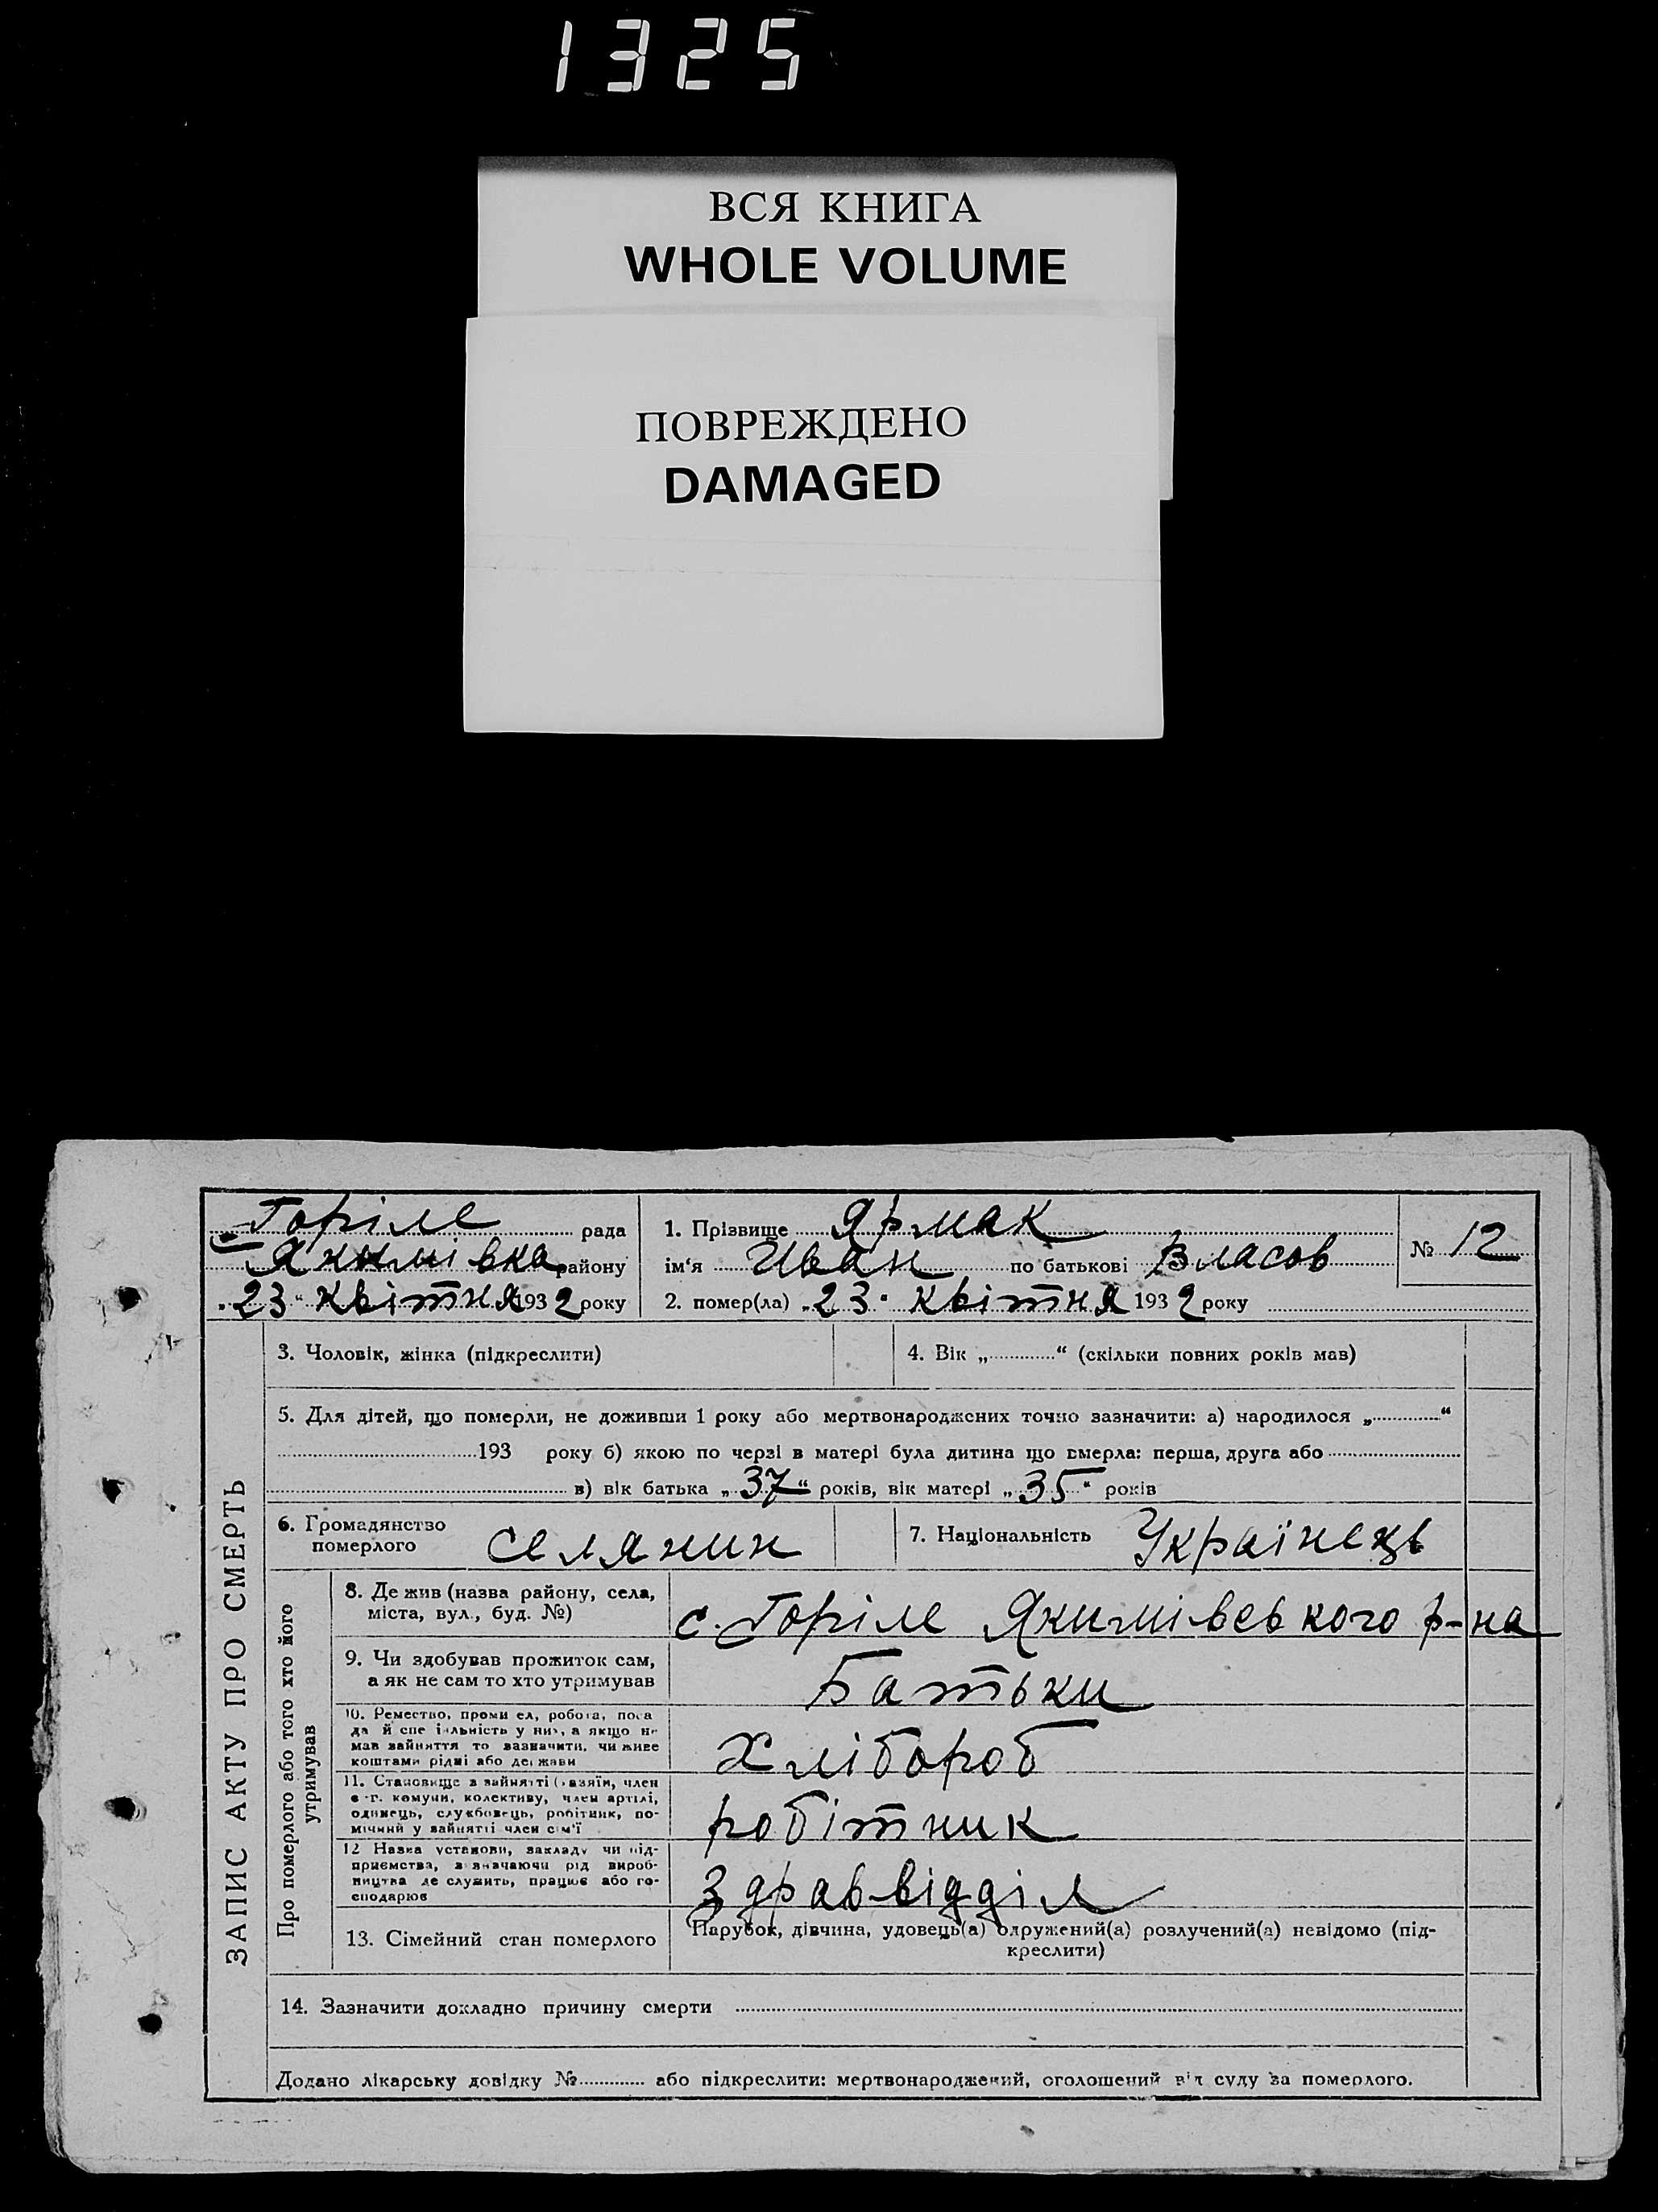 1325
ВСЯ КНИГА
WHOLE VOLUME
ПОВРЕЖДЕНО
DAMAGED
Горіле рада
Якимівка району
„23“ квітня 1932 року
1. Прізвище Ярмак
ім'я Иван по батькові Власов
2. помер(ла) „23“ квітня 1932 року
№ 12
ЗАПИС АКТУ ПРО СМЕРТЬ
3. Чоловік, жінка (підкреслити)
4. Вік „ “ (скільки повних років мав)
5. Для дітей, що померли, не доживши 1 року або мертвонароджених точно зазначити: а) народилося „ “
193 року б) якою по черзі в матері була дитина що вмерла: перша, друга або
в) вік батька „37“ років, вік матері „35“ років
6. Громадянство
померлого селянин
7. Національність Українець
Про померлого або того хто його
утримував
8. Де жив (назва району, села,
міста, вул., буд. №)
с. Горіле Якимівського р-на
9. Чи здобував прожиток сам,
а як не сам то хто утримував
Батьки
10. Ремество, промисел, робота, поса
да й спеціяльність у них, а якщо не
мав зайняття то зазначити, чи живе
коштами рідні або держави
Хлібороб
11. Становище в зайнятті (хазяїн, член
с.-г. комуни, колективу, член артілі,
одинець, службовець, робітник, по-
мічний у зайнятті член сім'ї
робітник
12 Назва установи, закладу чи під-
приємства, зазначаючи рід вироб-
ництва де служить, працює або го-
сподарює
Здраввідділ
13. Сімейний стан померлого
Парубок, дівчина, удовець(а) одружений(а) розлучений(а) невідомо (під-
креслити)
14. Зазначити докладно причину смерти
Додано лікарську довідку № або підкреслити: мертвонароджений, оголошений від суду за померлого.